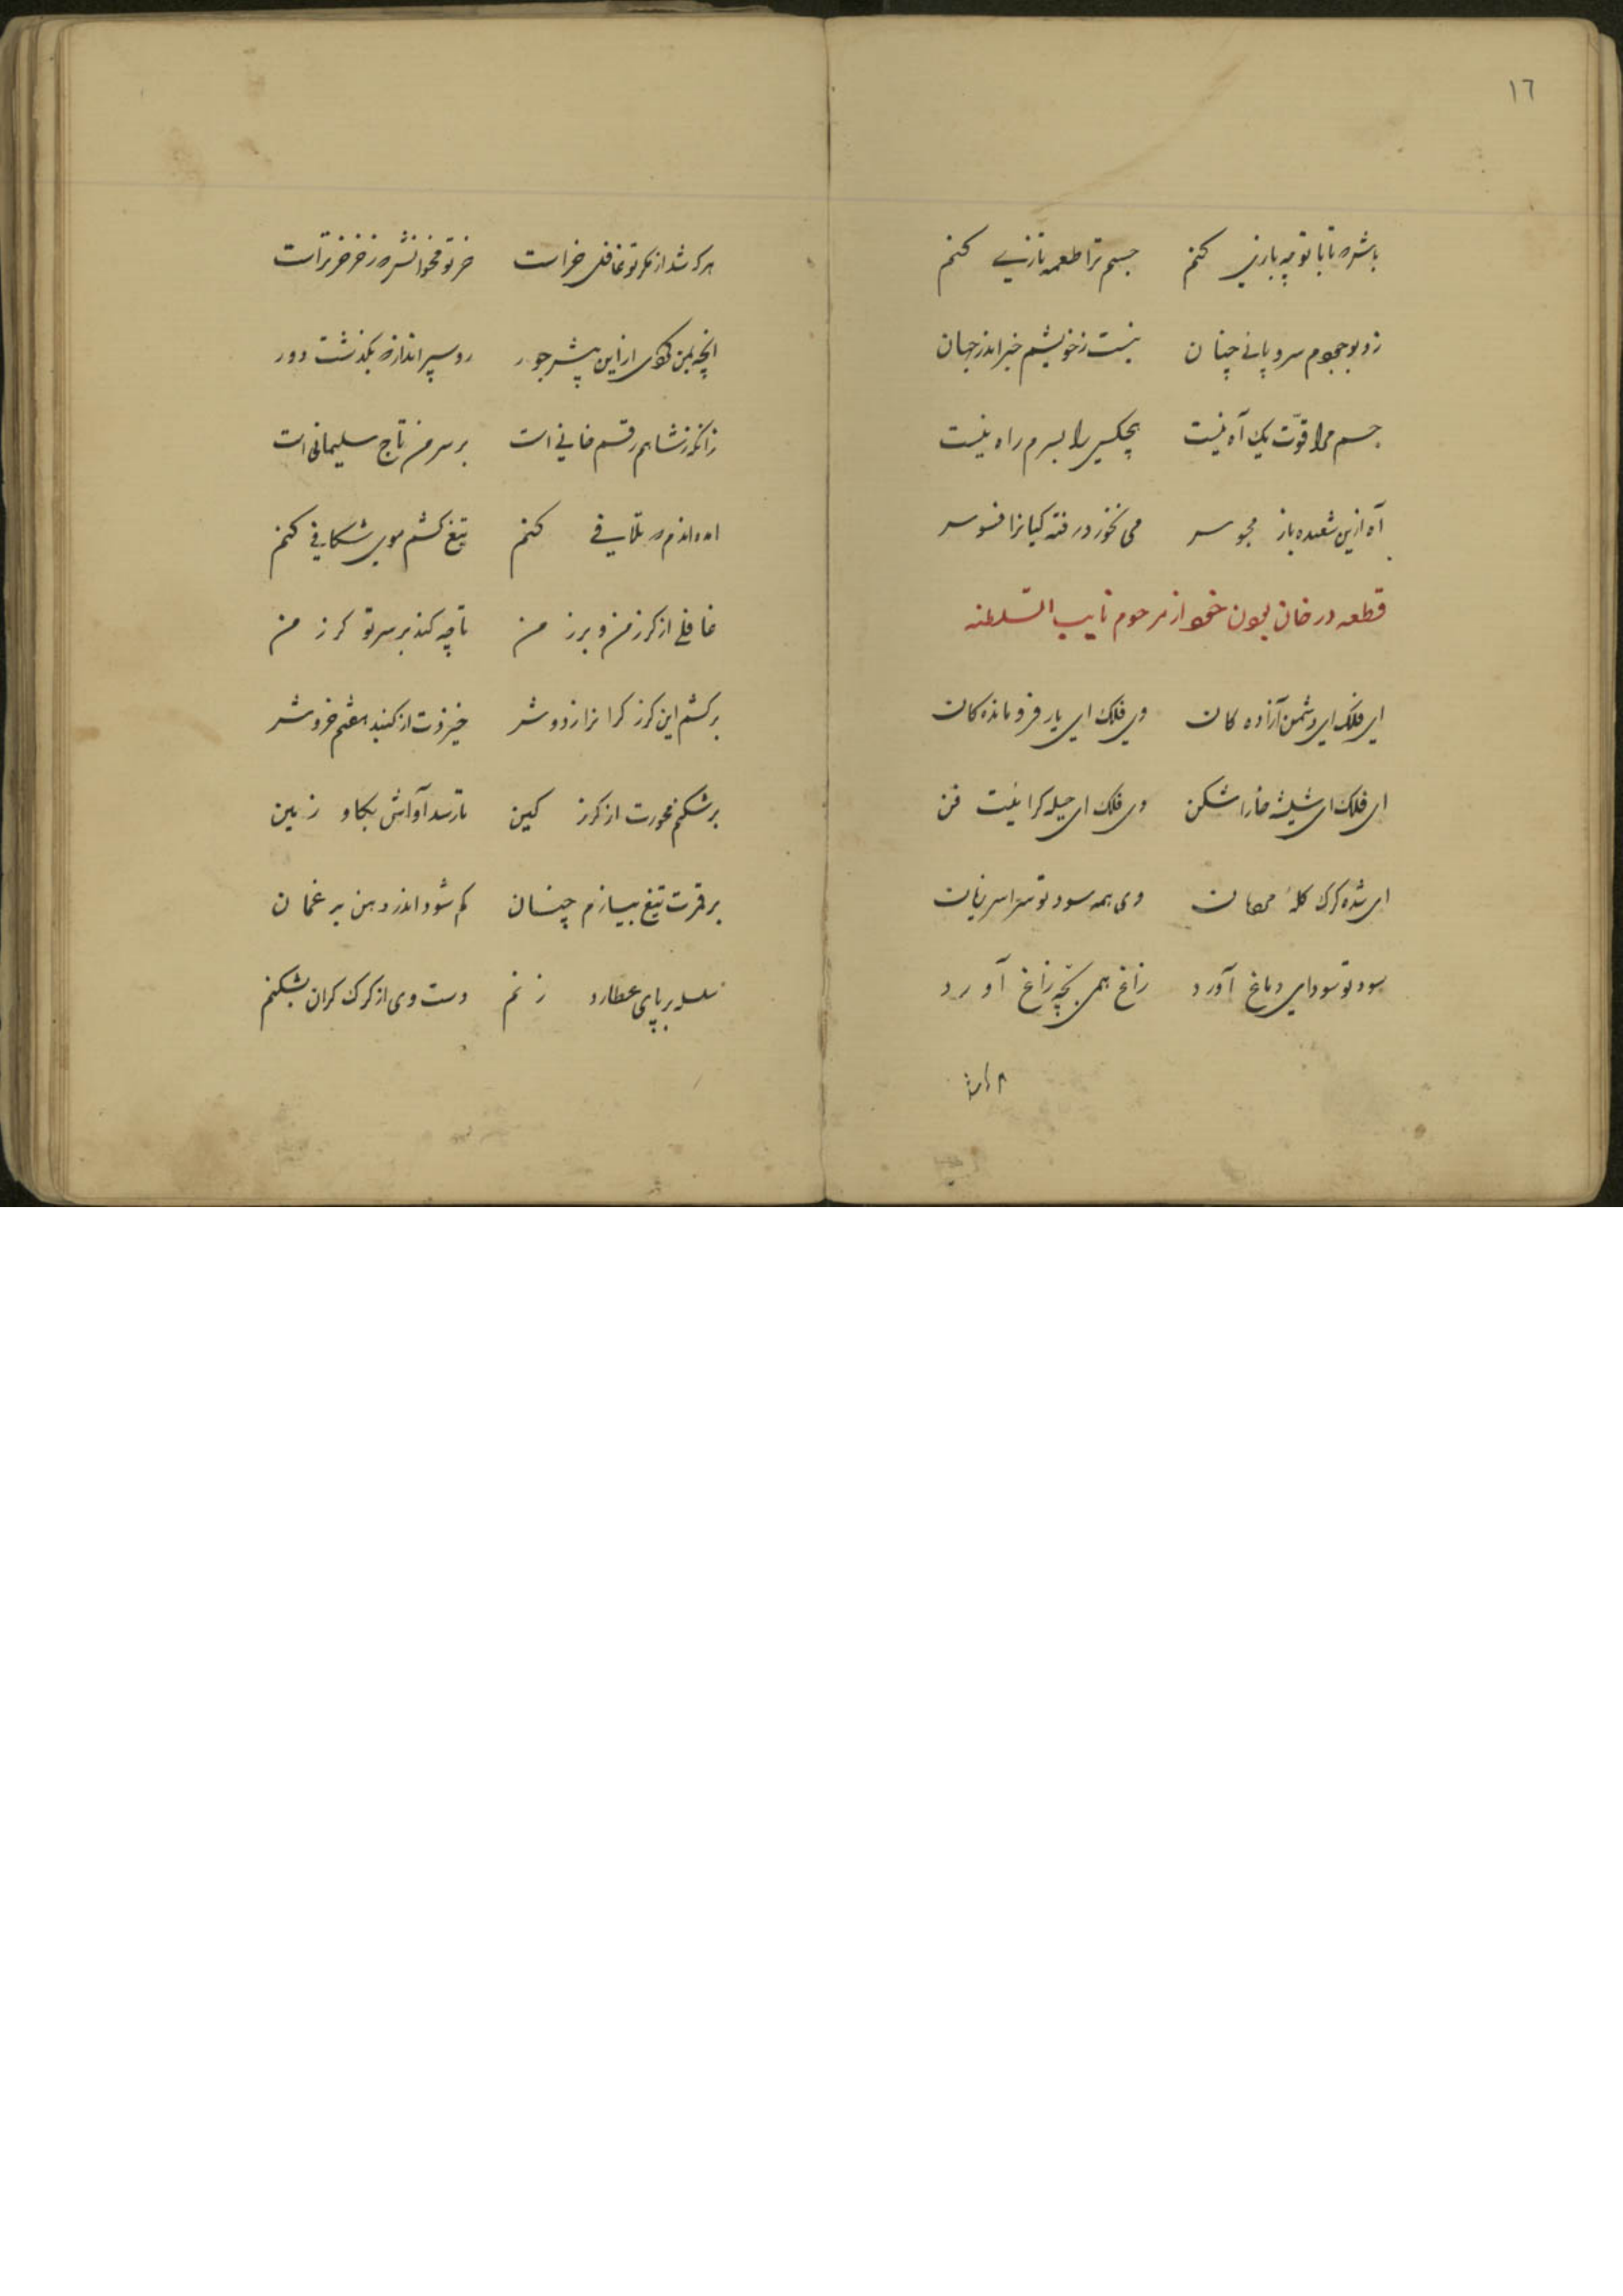 ١٦
باش که تا با تو چه بازی کنم جسم ترا طعمه تازی کنم
زد بوجودم سر و پائی چنان نیست ز خویشم خبر اندر جهان
جسم مرا قوّت یک آه نیست هیچکسی را بسرم راه نیست
آه ازین شعبده باز مجوس می نخورد رفته کیانرا فسوس
قطعه در خان بودن خود از مرحوم نایب السّلطنه
ای فلک ای دشمن آزاده کان وی فلک ای یار فرومانده کان
ای فلک ای شیشه خارا شکن وی فلک ای حیله کرا نیست فن
ای شده کرک کلهٔ وی همه سود تو سراسر زیان
سود تو سودای دماغ آورد زاغ همی بچه زاغ آورد
هر که شد از مکر تو غافل خر است خر تو مخوانش که ز خر خرتر است
آنچه بمن کردی ازین پیش جور رو سپر انداز که بگذشت دور
زانکه ز شاهم رقم خانی است بر سر من تاج سلیمانی است
آمده‌ام که تلافی کنم تیغ کشم موی شکافی کنم
غافلی از کرز من و برز من تا چه کند بر سر تو کرز من
برکشم این کرز کرانرا ز دوش خیزدت از کنبد هفتم خروش
برشکنم محورت از کرز کین تا رسد آواش بکاو زمین
بر تیغ بیازم چنان کم شود اندر دهن
بر پای عطارد زنم دست وی از کرک کران بشکنم